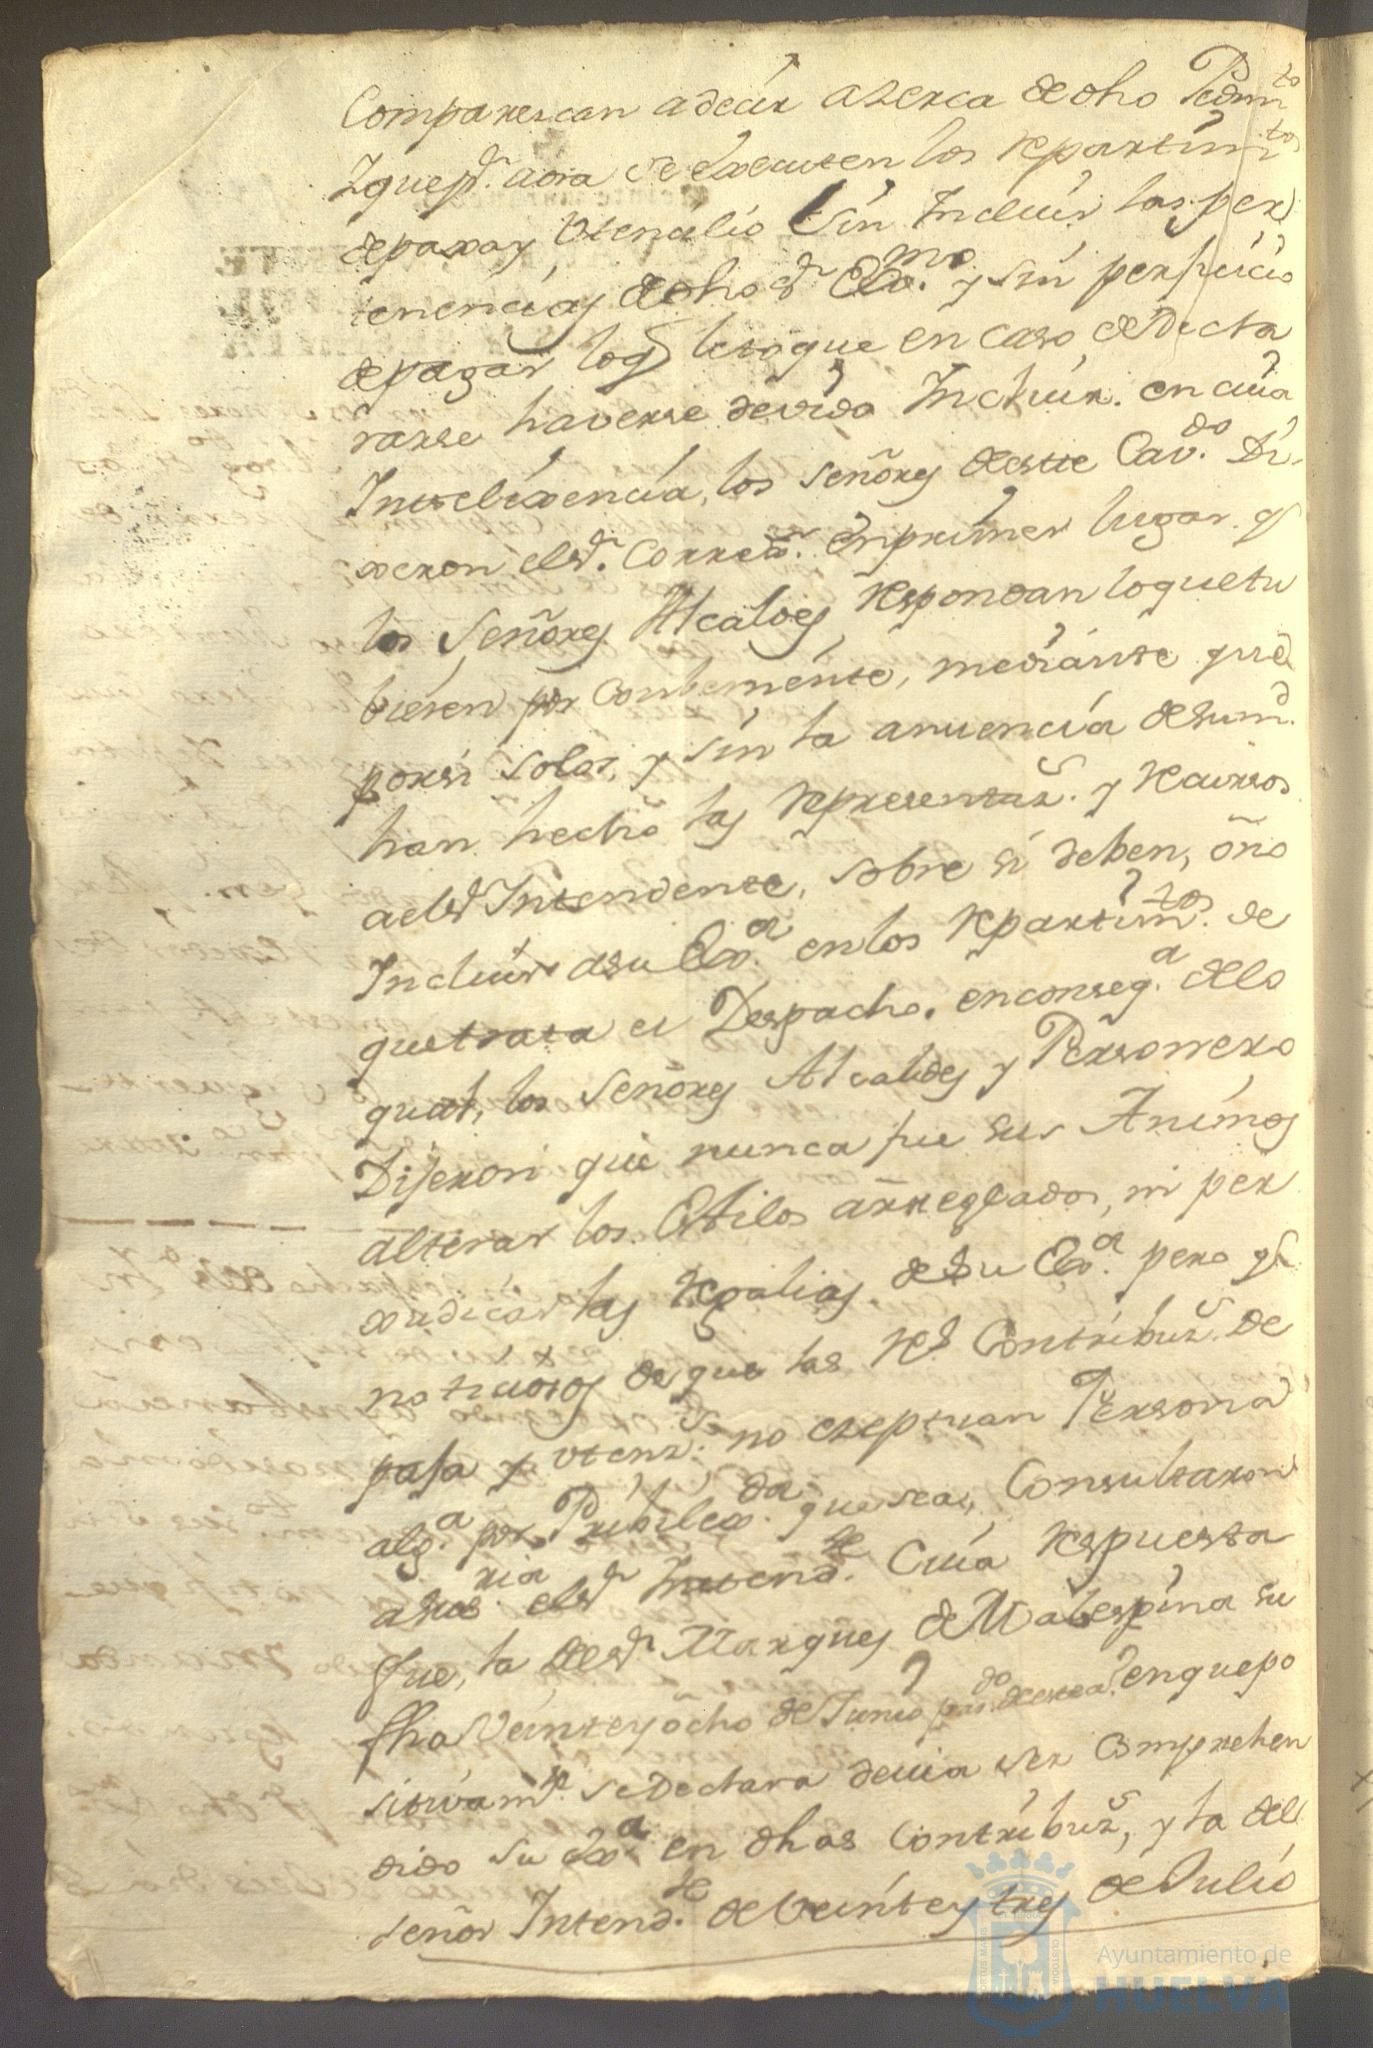 Comparezcan adecir azerca de dho Pedim.to
Yque pr. aora se executen los repartim.tos
depaxa y Utencilio Sin Incluir las per
tenencias de dho Sr. Exmo. y sin perjuicio
de pagar loq letoque en caso de Decla
rarse haverse devido Incluir. en cuia
Intelixencia, los Señores deste Cav.do Di-
xeron elSr. Correxr. en primer lugar q
los Señores Alcaldes respondan loquetu
bieren por conbeniente, mediante que
porsi solos, y sin la anuencia desumd.
han hecho las representazs. y recursos
a elSr Intendente, sobre si deben, ô no
Incluir asu Exa. en los repartimtos. de
quetrata el Despacho. en conseqa. delo
qual, los Señores Alcaldes y Personero
Dijeron que nunca fue sus Animos
alterar los Estilos arreglados, ni per
xudicar las regalias de Su Exa. pero q
noticiosos de que las Rs Contribuzs. de
paja y utens. no ezeptuan Persona
alga. por Pribilexda. que sea, Consultaron
a Sus ria elSr Intendte. Cuia respuesta
fue, la delSr Marques de Malespina su
fha Veinteyôcho de Junio pasdo. deestea. enquepo
sitivamte. se Declara devia ser Comprehen
dido su Exa en dhas Contribuzs, y la del
señor Intendte. de Veinteytres de Julio
Ayuntamiento de
HUELVA